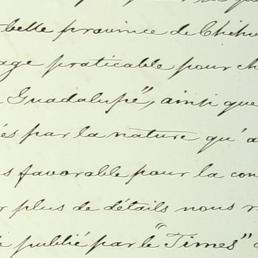 belle province de Chihu
age praticable pour ch
Guadalupe", ainsi que
és par la nature qu'a
s favorable pour la con
r plus de détails nous r
publié par le "Times"